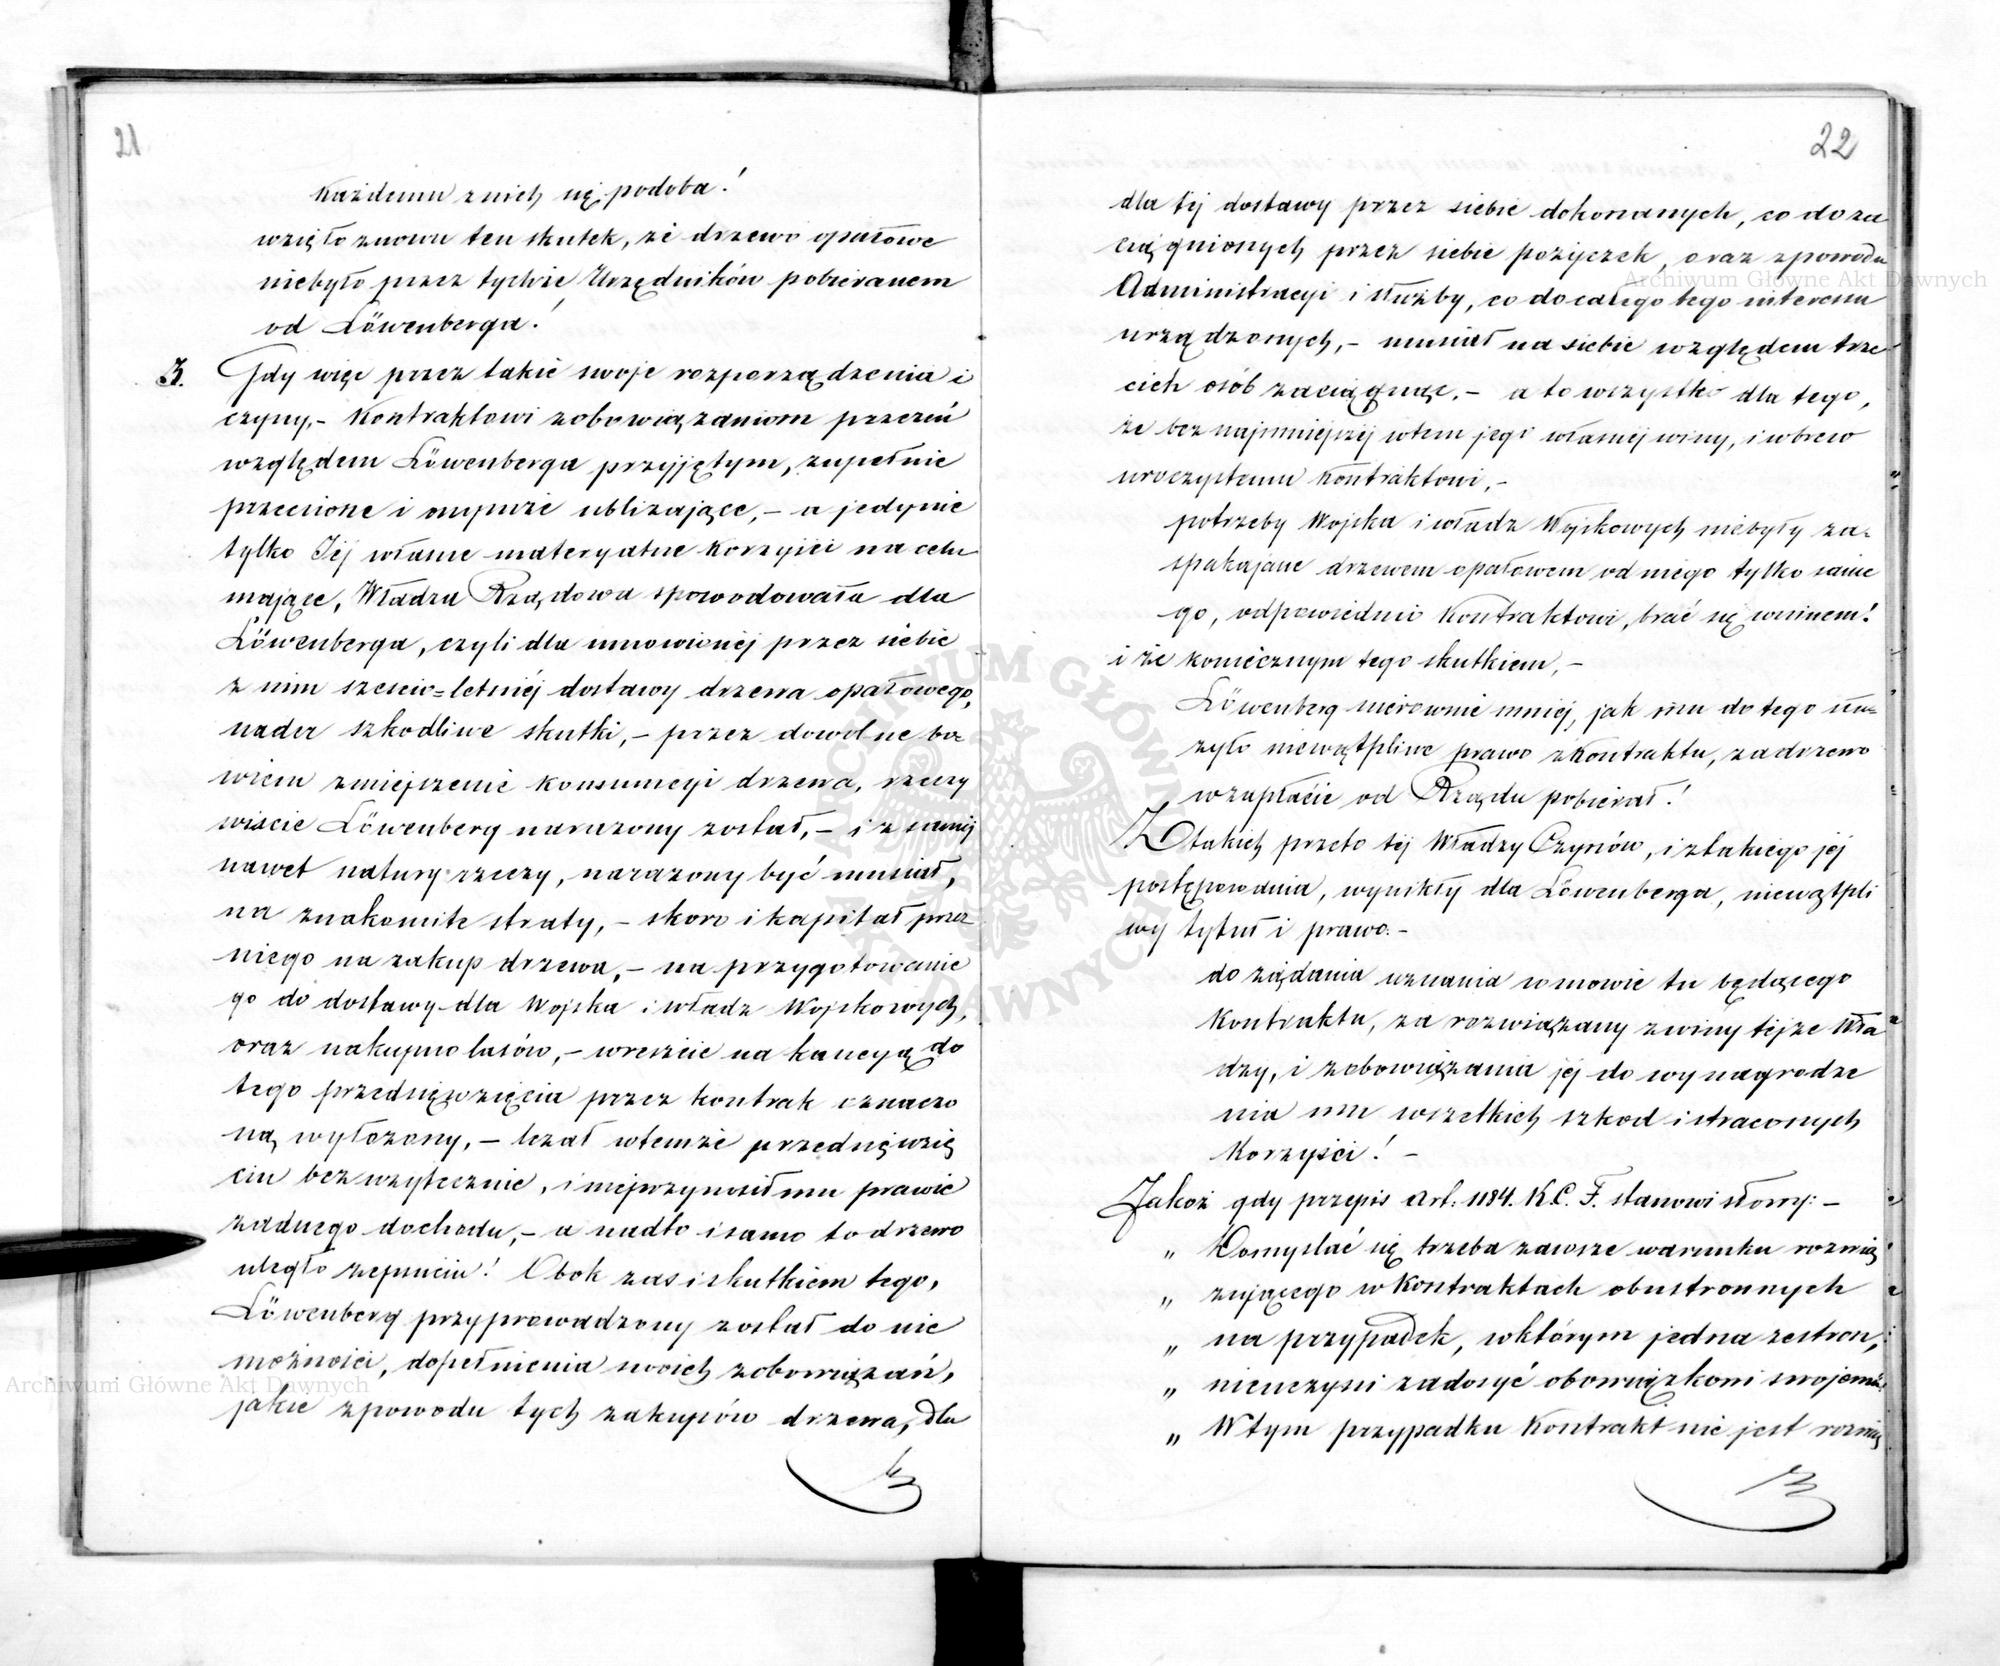 21
Każdemu z nich się podoba!
wzięło znowu ten skutek, że drzewo opałowe
niebyło przez tychże Urzędników pobieranem
od Löwenberga!
3. Gdy więc przez takie swoje rozporządzenia i
czyny,- Kontraktowi zobowiązaniom przezeń
względem Löwenberga przyjętym, zupełnie
przeciwne i onymże ubliżające,- a jedynie
tylko Jéj własne materyalne Korzyści na celu
mające, Władza Rządowa spowodowała dla
Löwenberga, czyli dla umowionéj przez siebie
z nim sześcio=letniéj dostawy drzewa opałowego,
nader szkodliwe skutki,- przez dowolne bo
wiem zmiejszenie konsumcyi drzewa, rzeczy
wiście Löwenberg narażony został,- i z saméj
nawet natury rzeczy, narażony być musiał,
na znakomite straty,- skoro i kapitał przez
niego na zakup drzewa,- na przygotowanie
go do dostawy dla Wojska i władz Wojskowych,
oraz nakupno lasów,- wreszcie na kaucyą do
tego przedsięwzięcia przez kontrak oznaczo
ną wyłożony,- leżał wtemże przedsięwzię
ciu bezużytecznie, i nieprzynosił mu prawie
żadnego dochodu,- a nadto i samo to drzewo
uległo zepsuciu! Obok zaś i skutkiem tego,
Löwenberg przyprowadzony został do nie
możności, dopełnienia swoich zobowiązań,
jakie zpowodu tych zakupów drzewa, dla
22
dla téj dostawy przez siebie dokonanych, co do za
ciągnionych przez siebie pożyczek, oraz zpowodu
Administracyi i służby, co do całego tego interesu
urządzonych,- musiał na siebie względem trze
cich osób zaciągnąć,- a to wszystko dla tego,
że bez najmniejszéj wtem jego własnéj winy, i wbrew
uroczystemu Kontraktowi,-
potrzeby Wojska i władz Wojskowych niebyły za=
spakajane drzewem opałowem od niego tylko same
go, odpowiednio Kontraktowi, brać się winnem!
i że koniecznym tego skutkiem,-
Löwenberg nierównie mniéj, jak mu do tego słu=
żyło niewątpliwe prawo z Kontraktu, za drzewo
wzapłacie od Rządu pobierał!
Z takich przeto téj Władzy Czynów, i z takiego jéj
postępowania, wynikły dla Löwenberga, niewątpli
wy tytuł i prawo.-
do żądania uznania w mowie tu będącego
Kontraktu, za rozwiązany z winy téjże Wła=
dzy, i zobowiązania jéj do wynagrodze
nia mu wszelkich szkod i straconych
Korzyści! -
Jakoż gdy przepis Art. 1184. K. C. F. stanowi słowy: -
„ Domyślać się trzeba zawsze warunku rozwią
„ zującego w Kontraktach obustronnych
„ na przypadek, wktórym jedna zestron,
„ nieuczyni zadosyć obowiązkowi swojemu.
„ W tym przypadku Kontrakt nie jest rozwią
Archiwum Główne Akt Dawnych
Archiwum Główne Akt Dawnych
ARCHIWUM GŁÓWNE AKT DAWNYCH